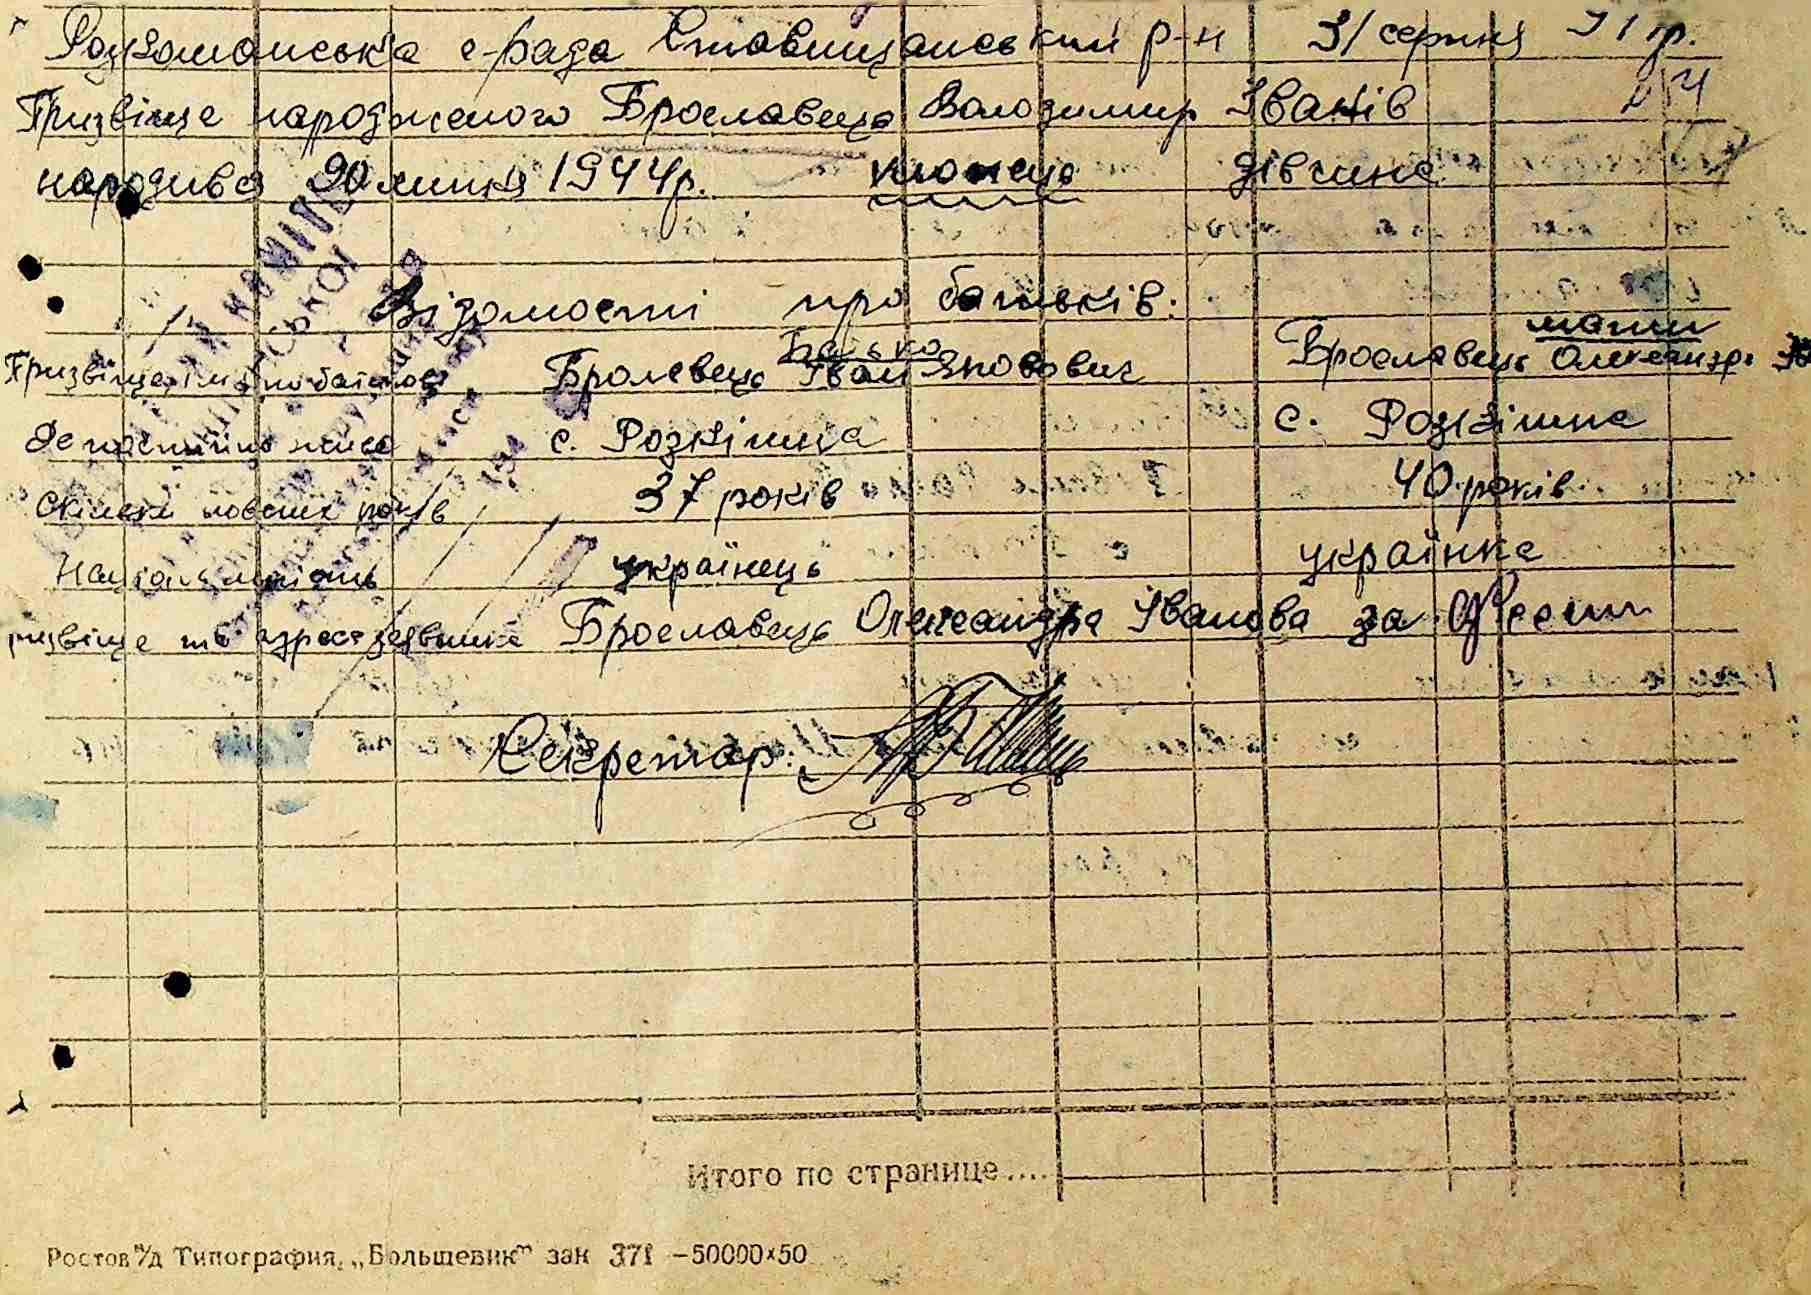 с-рада Ставищанський р-н 31 серпня
Призвіще народженого Брославець Володимир Іванів
народився 20 липня 1944р. хлопець дівчина
Відомості про батьків:
Батько мати
Призвіще ім. по батькові Бролевець Іван Яковович Брославець Олександра
Де постійно живе с. Розкішна с. Розкішна
Скільки повних років 37 років 40 років
Національність українець українка
призвіще та адрес заявника Брославець Олександра Іванова за
Секретар:
Итого по странице....
Ростов н/Д Типография, „Большевик" зак 371 –50000×50